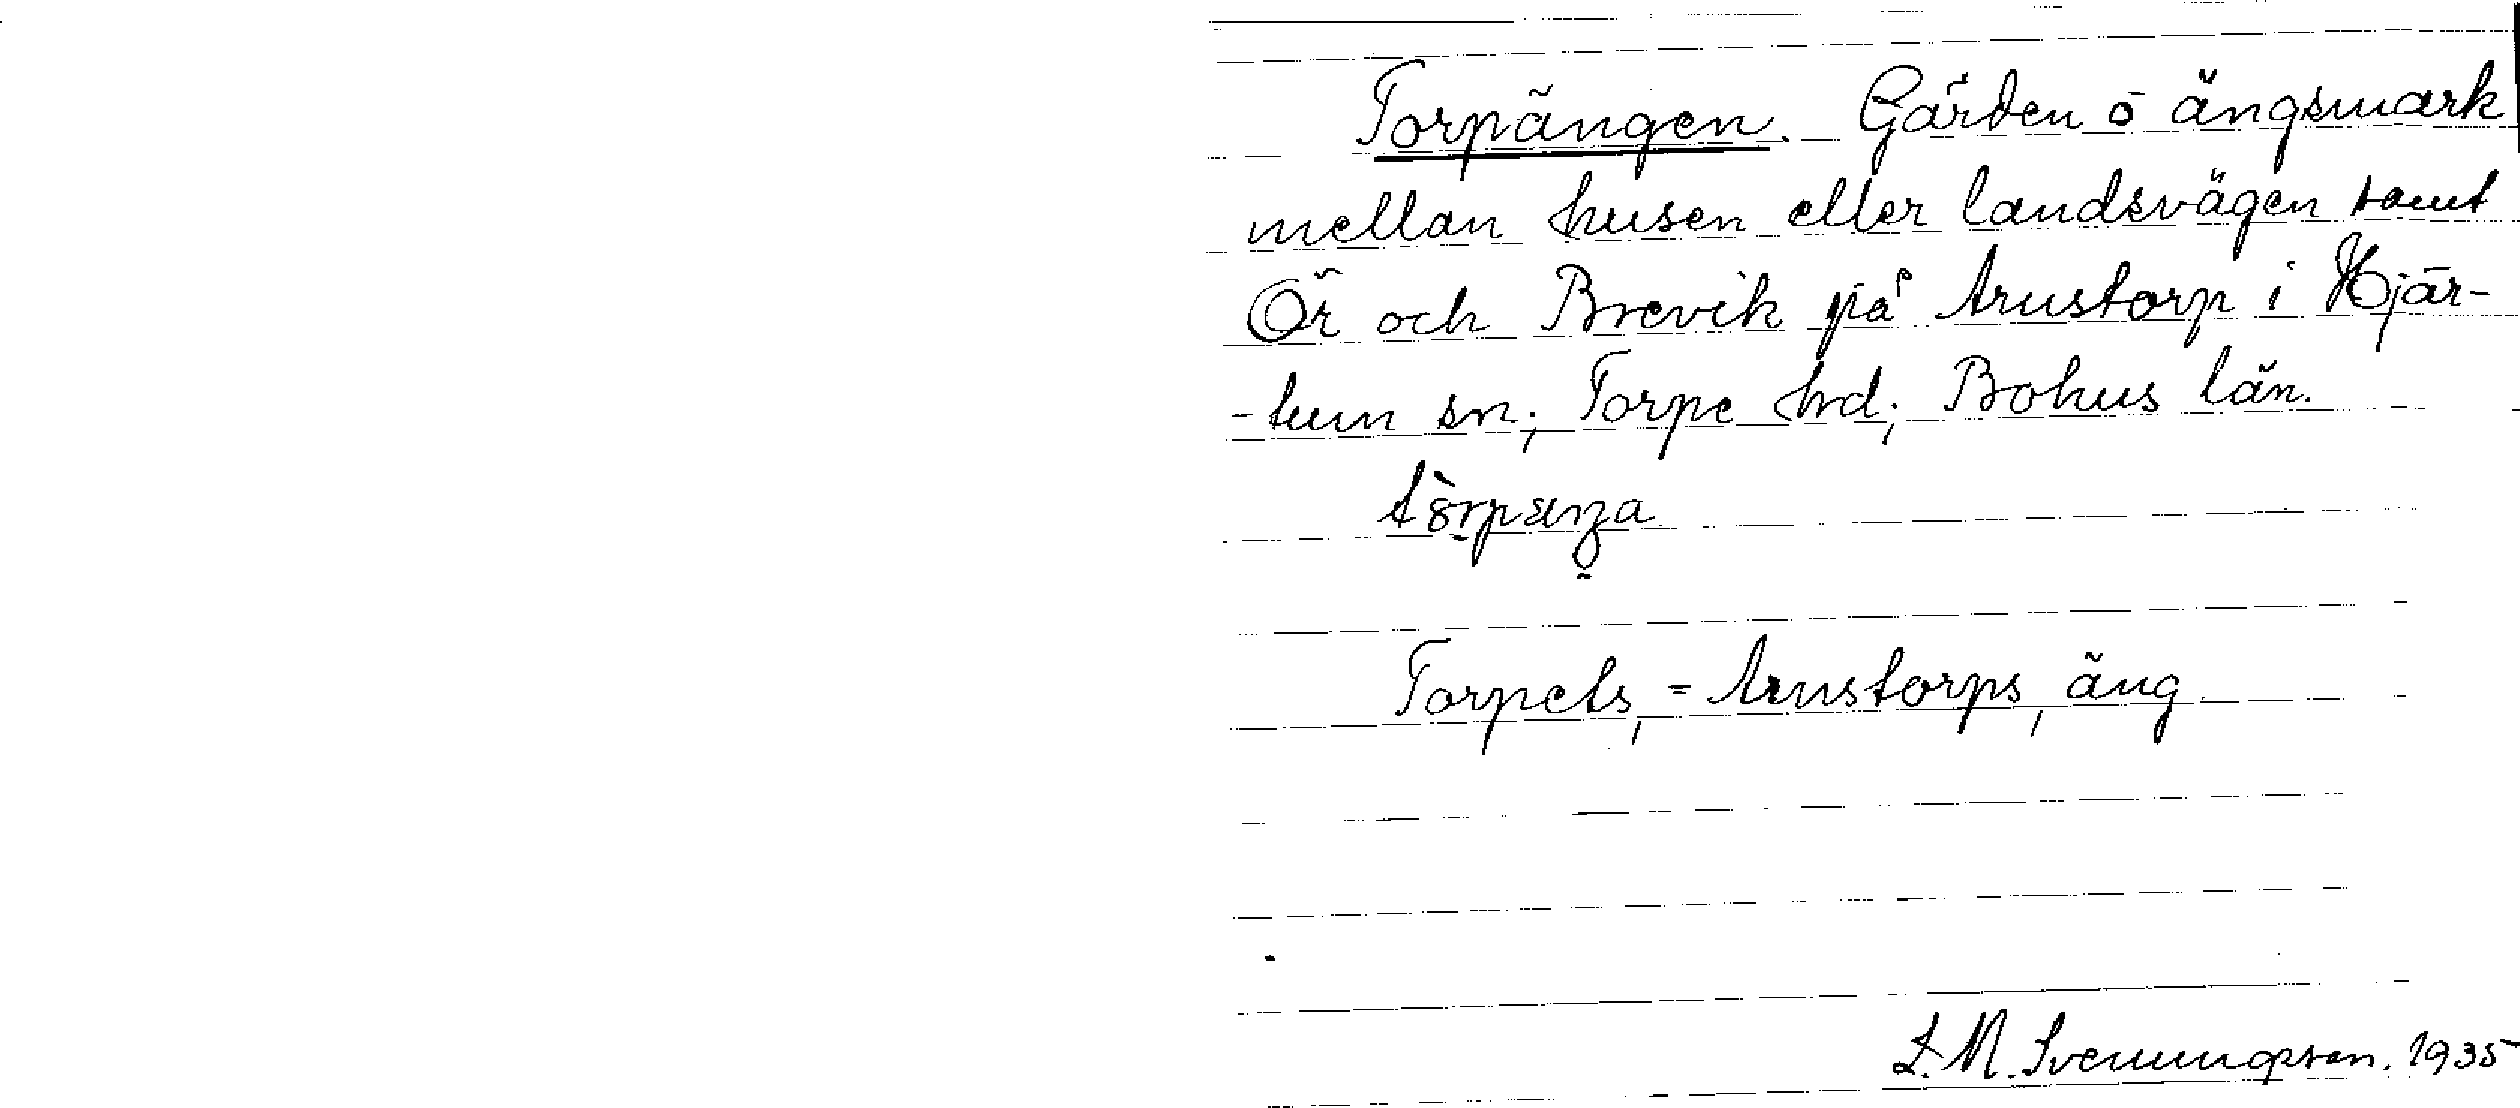 Torpängen. Gärden o ängsmark
mellan husen eller landsvägen samt
Ör och Brevik på Arustorp i Hjär-
-tum sn; Torpe hrd; Bohus län.
Torpets, = Arustorps, äng
L. M. Svenungsson. 1935